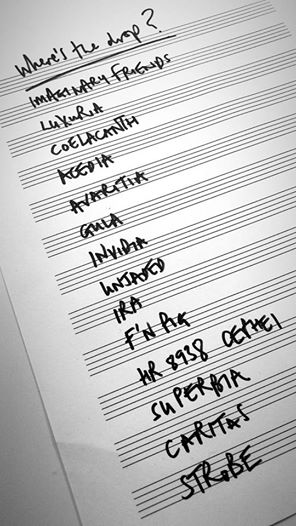 Where's the drop?
IMAGINARY FRIENDS
LUXURIA
COELACANTH
ACEDIA
AVARITIA
GULA
INVIDIA
UNJADED
IRA
F'N PIG
HR 8938 CEPHEI
SUPERBIA
CARITAS
STROBE